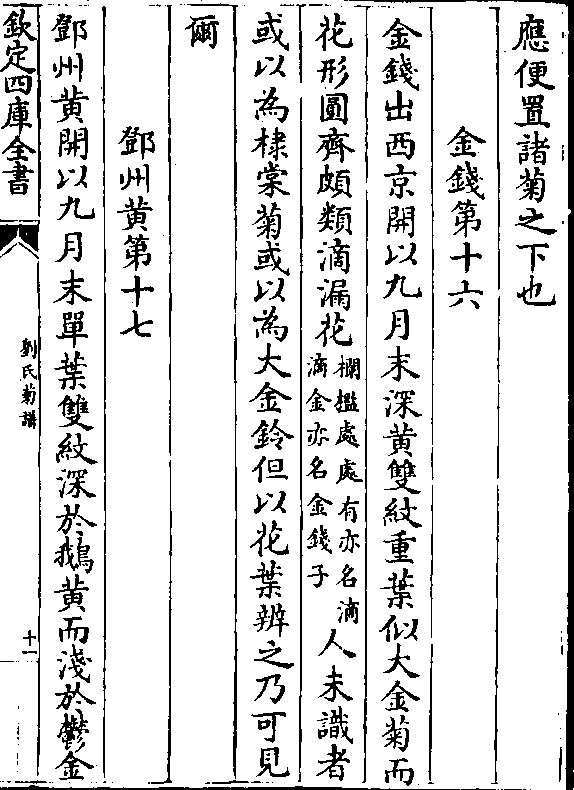 應便置諸菊之下也
金錢第十六
金錢出西京開以九月末深黄雙紋重葉似大金菊而
花形圓齊頗類滴漏花欄檻處處有亦名滴滴金亦名金錢子人未識者
或以為棣棠菊或以為大金鈴但以花葉辨之乃可見
爾
鄧州黄第十七
鄧州黄開以九月末單葉雙紋深於鵝黄而淺於鬱金
欽定四庫全書
劉氏菊譜
十一